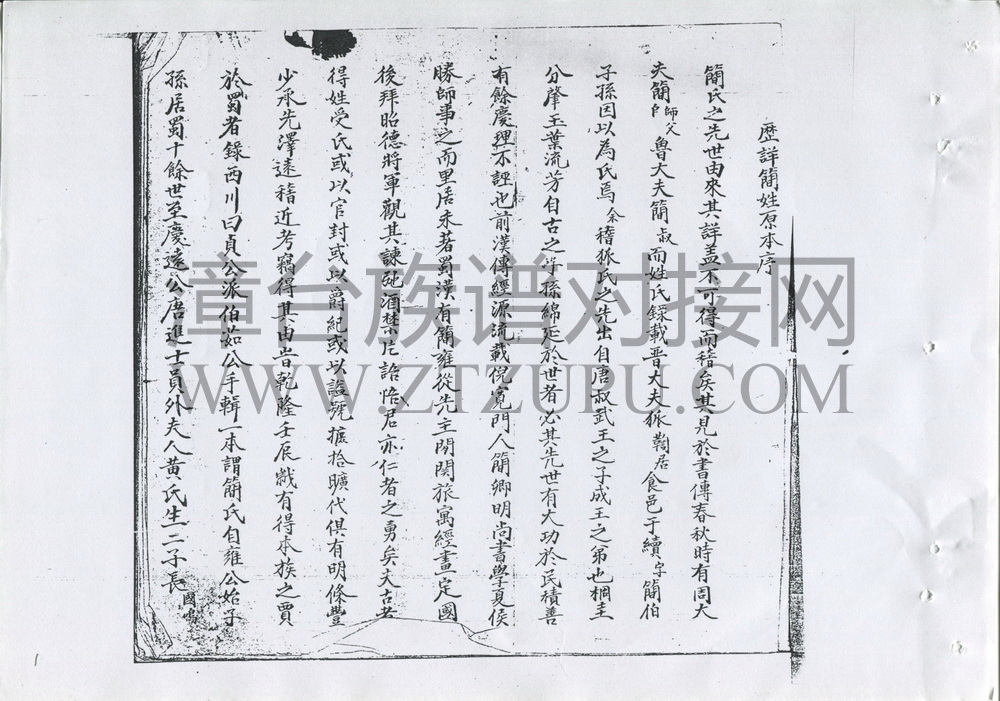 歷詳簡姓原本序
簡氏之先世由來其詳盖不可得而稽矣其見於書傳春秋時有周大
夫簡師父魯大夫簡叔而姓氏錄載晋大夫狐鞫居食邑于續字簡伯
子孫因以為氏焉余稽狐氏之先出自唐叔武王之子成王之弟也桐圭
分肇玉葉流芳自古之孫綿延於世者必其先世有大功於民積善
有餘慶理不誣也前漢傳經源流載倪寬門人簡卿明尚書學夏侯
勝師事之而里居未若蜀漢有簡雍從先主閞関旅寓經畫定國
後拜昭德將軍觀其諫弛酒禁片詒悟君亦仁者之勇矣夫古者
得姓受氏或以官封或以爵紀或以謚號摭拾曠代俱有明條豐
少承先澤遠稽近考竊得其由嵗乾隆壬辰戱有得本族之賈
於蜀者錄西川曰貞公派伯茹公手輯一本謂簡氏自雍公始子
孫居蜀十餘世至慶遠公唐進士員外夫人黄氏生二子長國
1
章台族谱对接网
WWW.ZTZUPU.COM